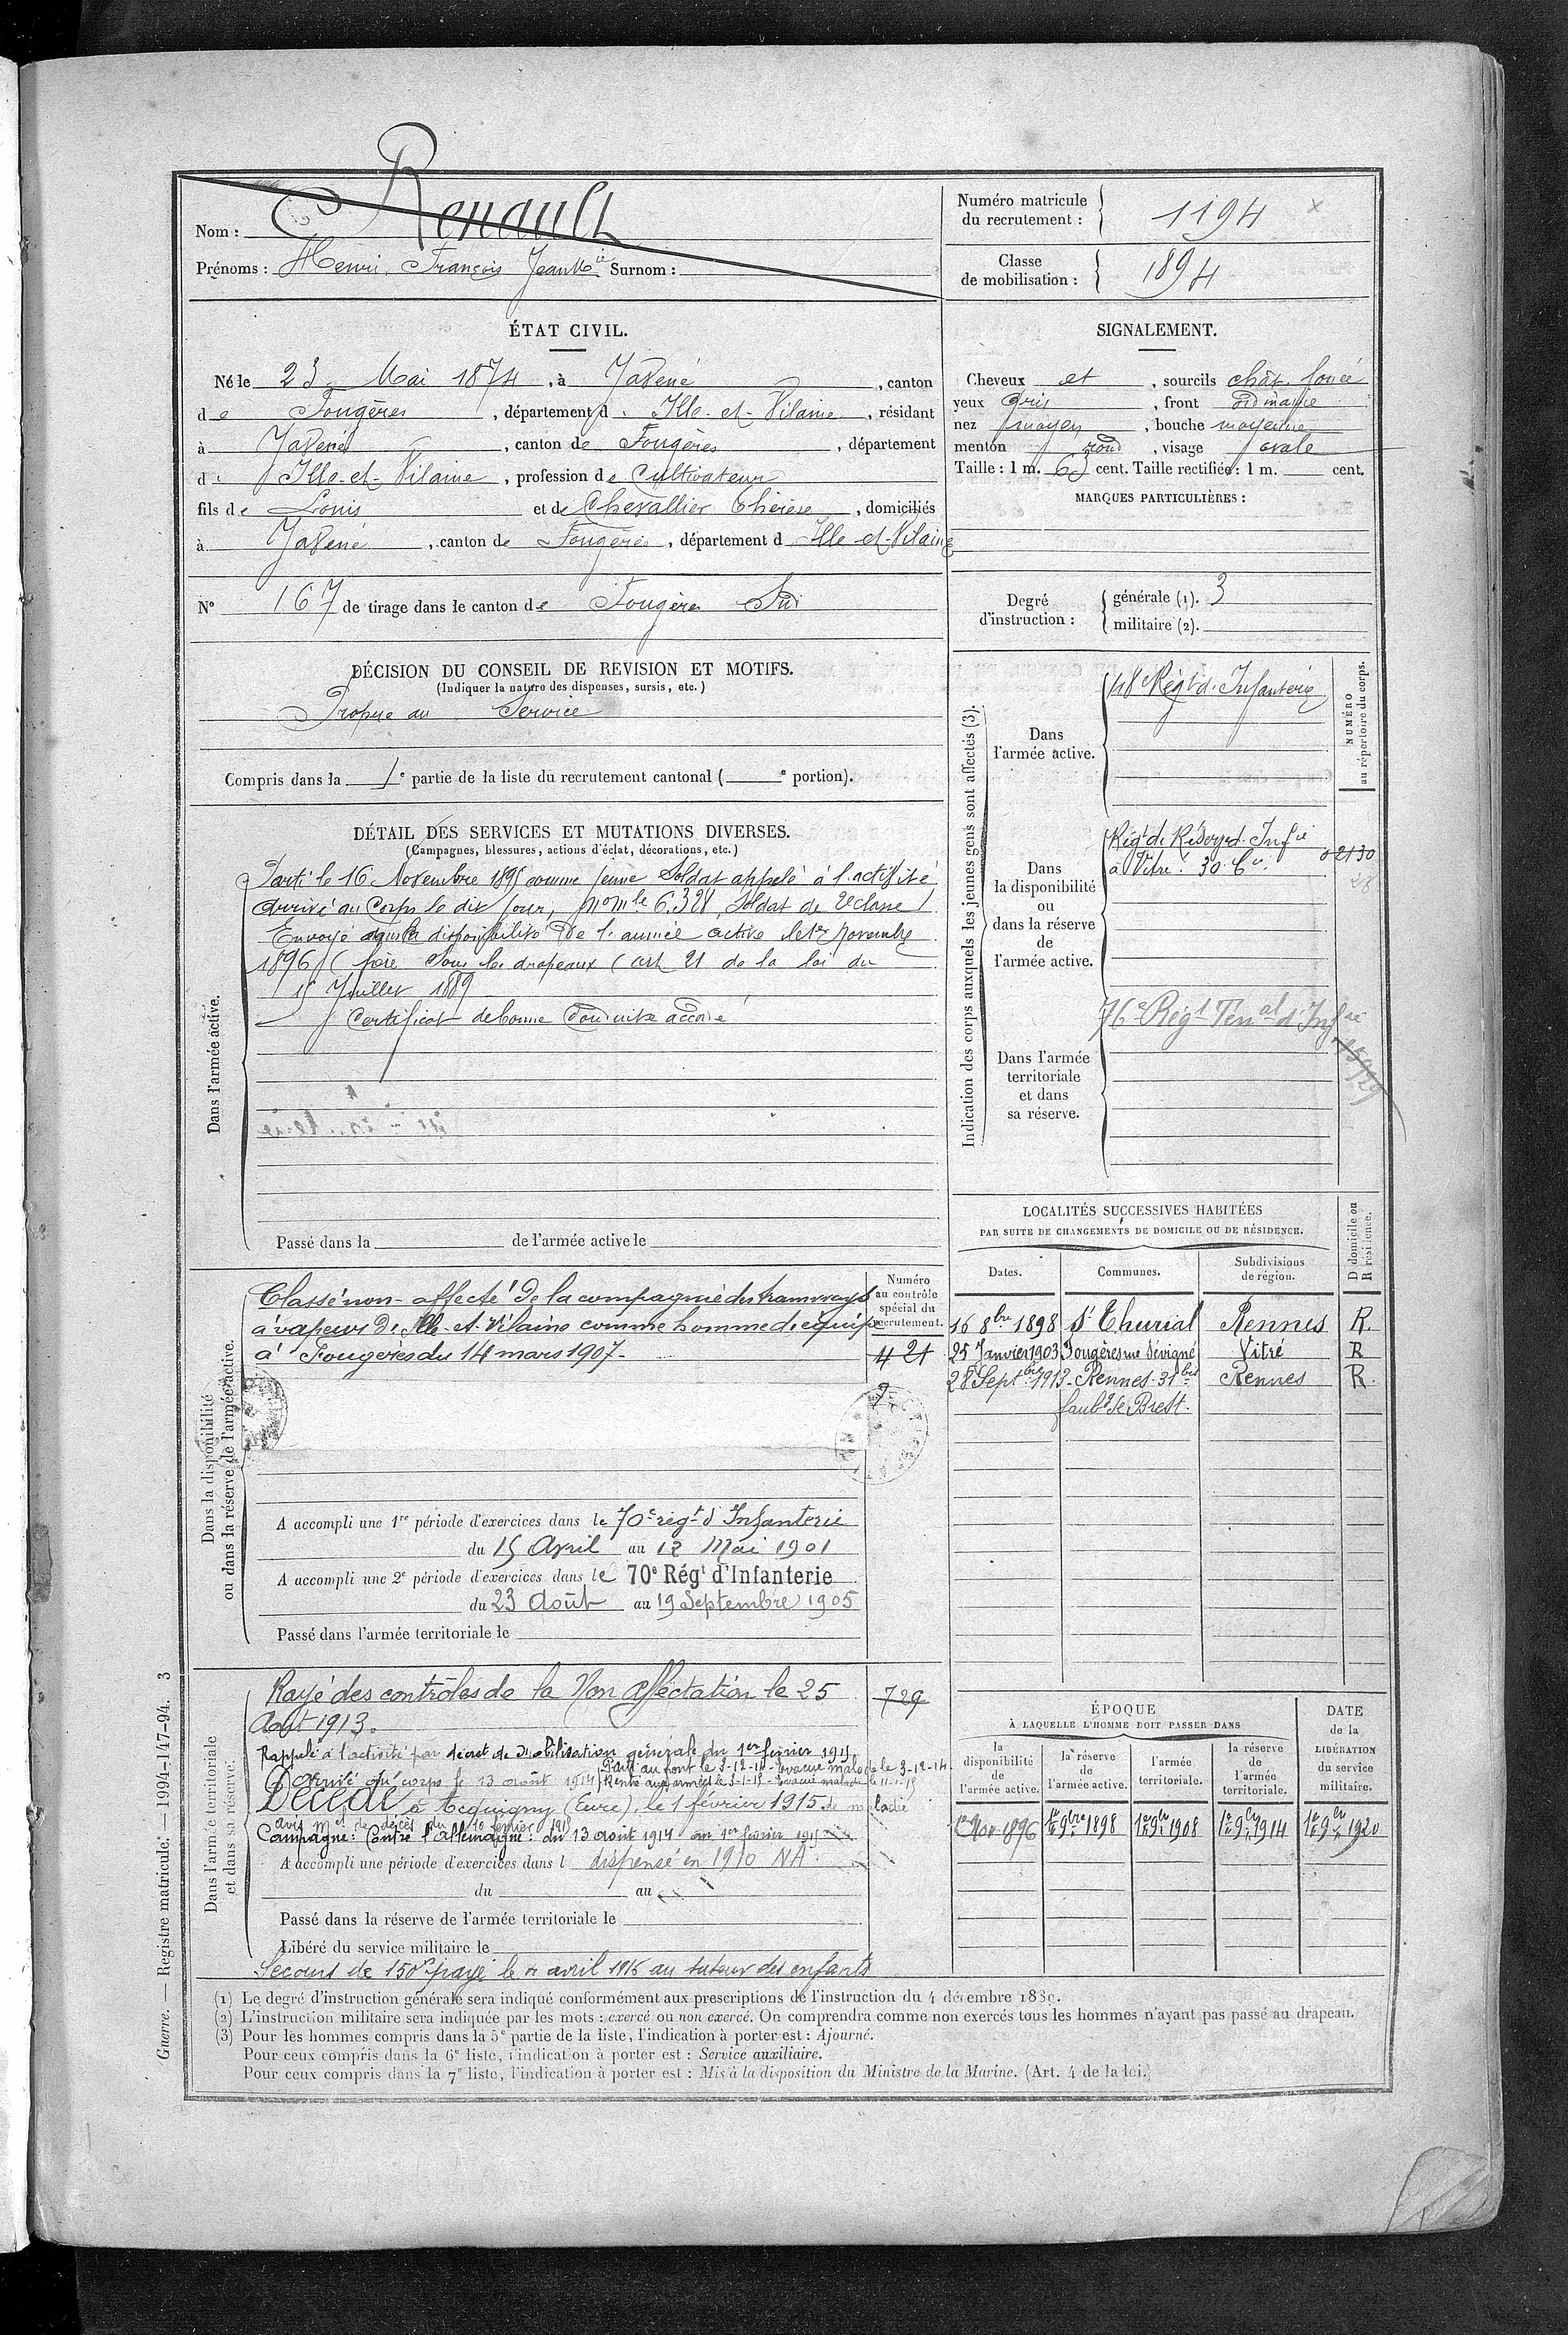 Nom : Renault
Prénoms : Henri, François Jean Mie Surnom :
Numéro matricule du recrutement : 1194
Classe de mobilisation : 1894
ÉTAT CIVIL.
Né le 23 Mai 1874, à Javené, canton
de Fougères, département d. Ille-et-Vilaine, résidant
à Javené, canton de Fougères, département
d. Ille-et-Vilaine, profession de Cultivateur
fils de Louis et de Chevallier Thérèse, domiciliés
à Javené, canton de Fougères, département d Ille-et-Vilaine
N° 167 de tirage dans le canton de Fougères Sud
SIGNALEMENT.
Cheveux et, sourcils chât. foncé
yeux gris, front ordinaire
nez moyen, bouche moyenne
menton rond, visage ovale
Taille : 1 m. 63 cent. Taille rectifiée : 1 m. cent.
MARQUES PARTICULIÈRES :
Degré d'instruction :
générale (1). 3
militaire (2).
DÉCISION DU CONSEIL DE REVISION ET MOTIFS.
(Indiquer la nature des dispenses, sursis, etc.)
Propre au Service
Compris dans la 1e partie de la liste du recrutement cantonal ( e portion).
DÉTAIL DES SERVICES ET MUTATIONS DIVERSES.
(Campagnes, blessures, actions d'éclat, décorations, etc.)
Dans l'armée active.
Parti le 16 Novembre 1895 comme jeune Soldat appelé à l'activité
arrivé au Corps le dit jour, No mle 6.328, Soldat de 2e classe
Envoyé dans la disponibilité de l'armée active le 1er novembre
1896 ( sous les drapeaux (art 21 de la loi du
15 Juillet 1889
Certificat de bonne Conduite accordé
Passé dans la de l'armée active le
Indication des corps auxquels les jeunes gens sont affectés (3).
NUMÉRO au répertoire du corps.
Dans l'armée active.
48e Régt d. Infanterie
Dans la disponibilité ou dans la réserve de l'armée active.
Régt de Réserve d. Infie
à Vitré. 30 Cie. 02130
28
Dans l'armée territoriale et dans sa réserve.
76e Régt Terral d'Infie
LOCALITÉS SUCCESSIVES HABITÉES
PAR SUITE DE CHANGEMENTS DE DOMICILE OU DE RÉSIDENCE.
Dates. Communes. Subdivisions de région. D domicile ou R résidence.
16 8bre 1898 St Thurial Rennes R.
25 Janvier 1903 Fougères rue Sévigné Vitré R
28 Septbre 1913 Rennes 31bis Rennes R.
faubg de Brest.
Dans la disponibilité ou dans la réserve de l'armée active.
Numéro au contrôle spécial du recrutement.
Classé non-affecté de la compagnie des tramways
à vapeur d. Ille-et-Vilaine comme homme d'équipe
à Fougères du 14 mars 1907-
A accompli une 1re période d'exercices dans le 70e régt d'Infanterie
du 15 Avril au 12 Mai 1901
A accompli une 2e période d'exercices dans le 70e Régt d'Infanterie
du 23 Août au 19 Septembre 1905
Passé dans l'armée territoriale le
Dans l'armée territoriale et dans sa réserve.
Rayé des contrôles de la Non Affectation le 25 729
Août 1913.
Rappelé à l'activité par décret de Mobilisation générale du 1er février 1915
Parti au front le 3-12-14 - Evacué malade le 3-12-14.
Arrivé au corps le 13 août 1914 Rentré aux armées le 3-1-15 - Evacué malade le 11-1-15
Décédé à Acquigny (Eure), le 1 février 1915 de maladie
avis mel de décès du 10 février 1915
Campagne : Contre l'Allemagne : du 13 août 1914 au 1er février 1915
A accompli une période d'exercices dans l dispensé en 1910 NA
du au
Passé dans la réserve de l'armée territoriale le
Libéré du service militaire le
Secours de 150f payé le avril 1916 au tuteur des enfants
ÉPOQUE
À LAQUELLE L'HOMME DOIT PASSER DANS
la disponibilité de l'armée active. la réserve de l'armée active. l'armée territoriale. la réserve de l'armée territoriale. DATE de la LIBÉRATION du service militaire.
1er Nov 1896 1er 9bre 1898 1er 9bre 1908 1er 9bre 1914 1er 9bre 1920
Guerre. — Registre matricule. — 1994-147-94. 3
(1) Le degré d'instruction générale sera indiqué conformément aux prescriptions de l'instruction du 4 décembre 1889.
(2) L'instruction militaire sera indiquée par les mots : exercé ou non exercé. On comprendra comme non exercés tous les hommes n'ayant pas passé au drapeau.
(3) Pour les hommes compris dans la 5e partie de la liste, l'indication à porter est : Ajourné.
Pour ceux compris dans la 6e liste, l'indication à porter est : Service auxiliaire.
Pour ceux compris dans la 7e liste, l'indication à porter est : Mis à la disposition du Ministre de la Marine. (Art. 4 de la loi.)